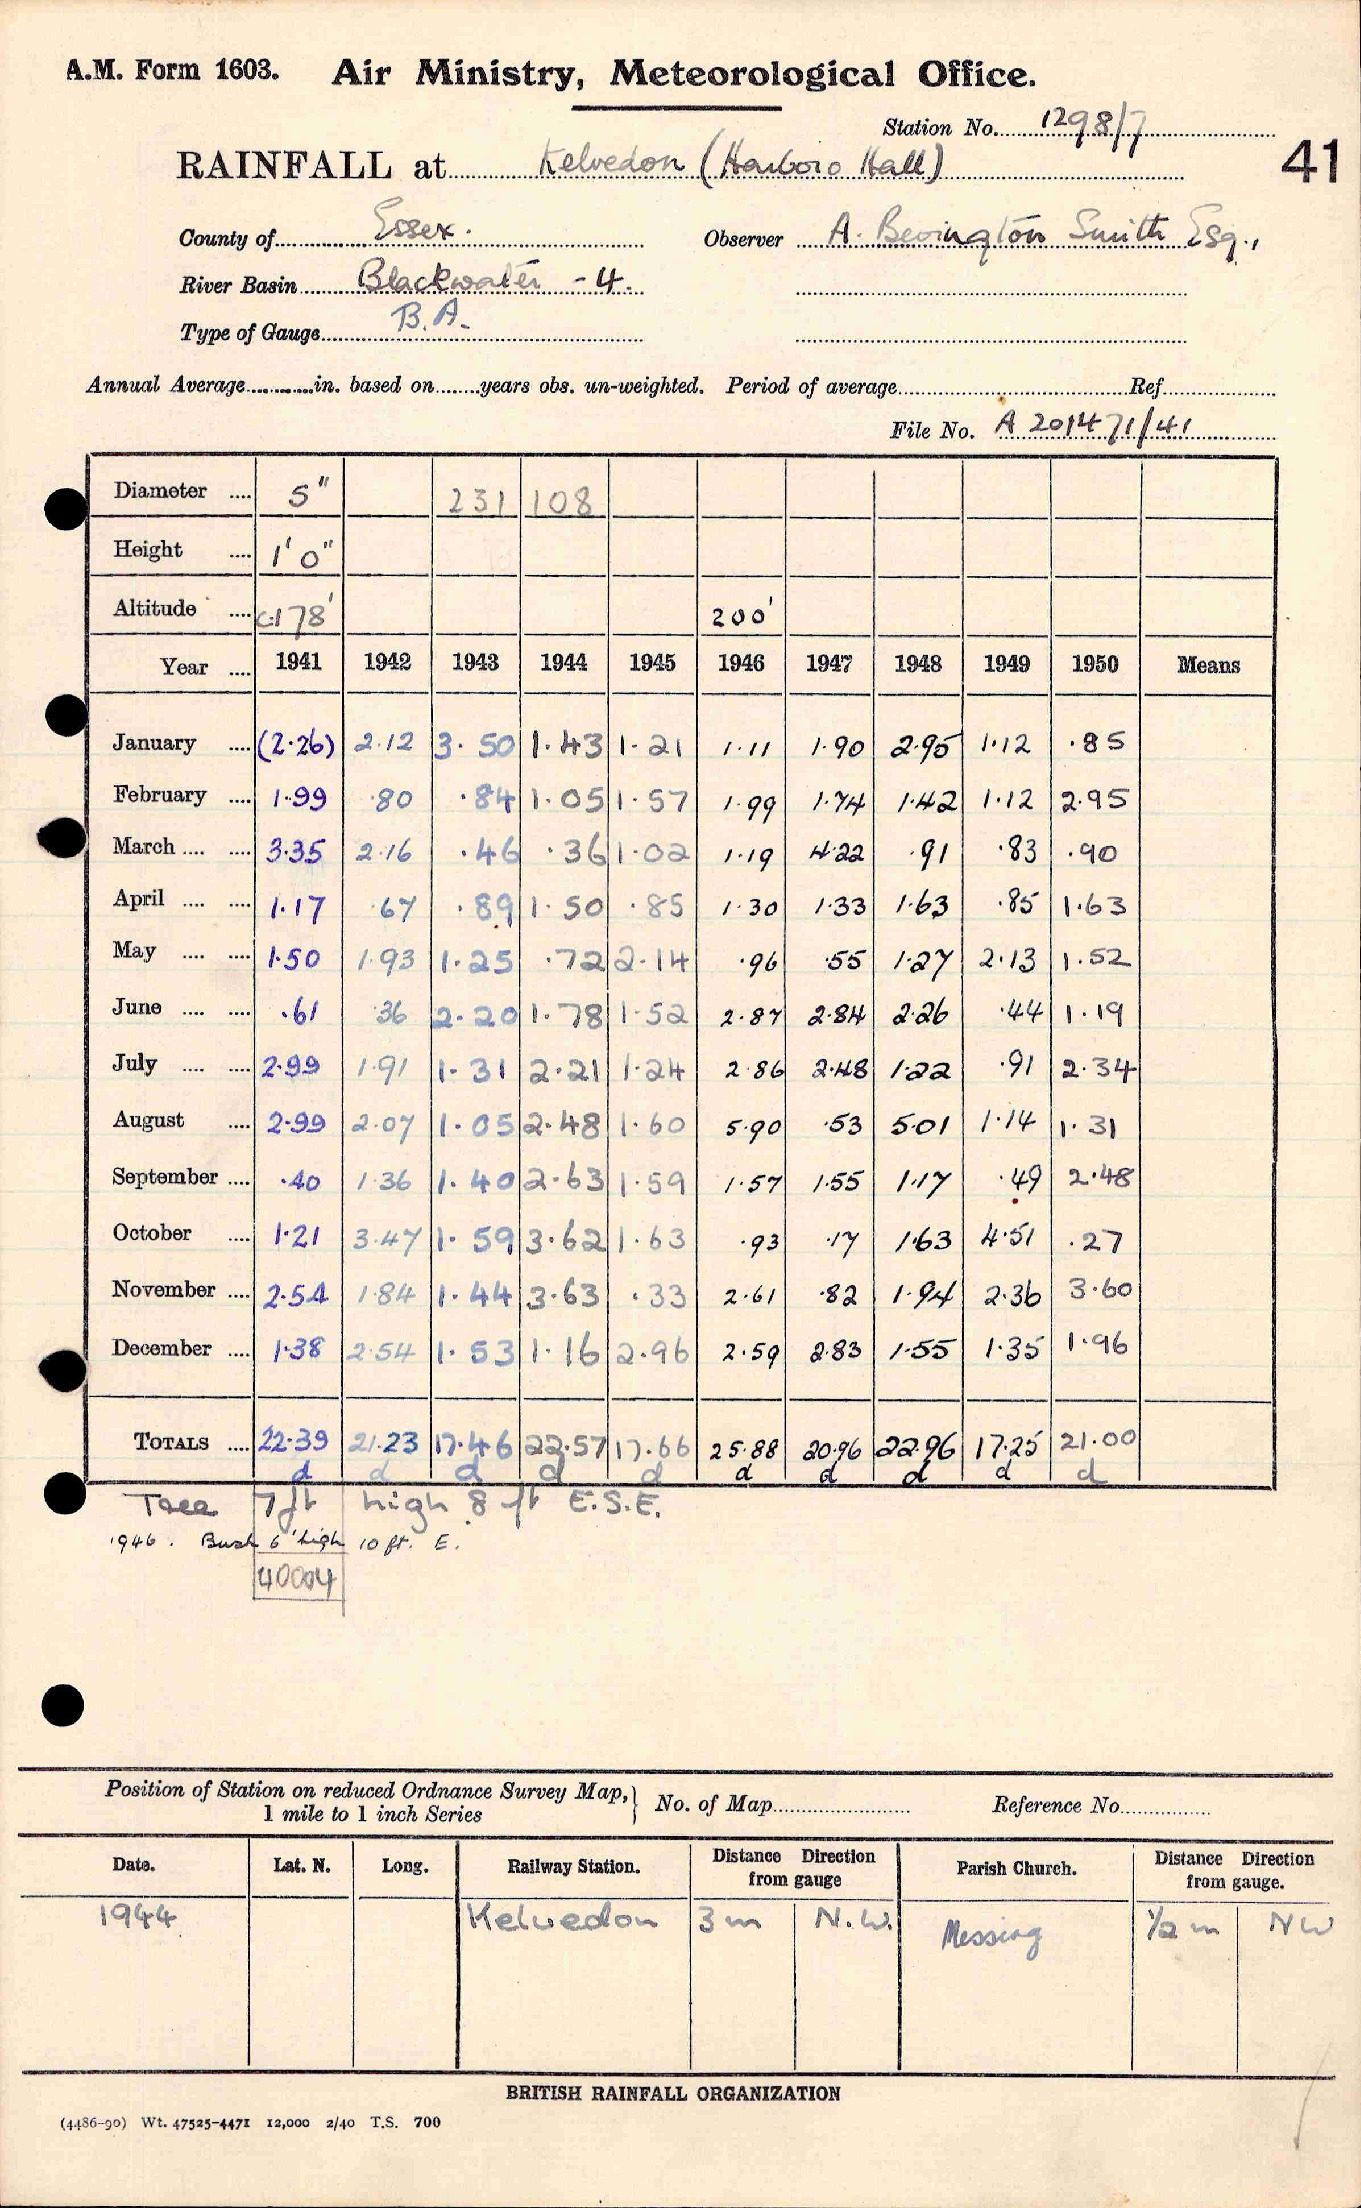 A.M. Form 1603. Air Ministry, Meteorological Office.
Station No. 1298/7
RAINFALL at Kelvedon (Harboro Hall) 41
County of Essex. Observer A. Bevington Smith Esq.,
River Basin Blackwater - 4.
Type of Gauge B.A.
Annual Average in. based on years obs. un-weighted. Period of average Ref
File No. A 201471/41
Diameter .... 5" 231 108
Height .... 1' 0"
Altitude .... c.178' 200'
Year .... 1941 1942 1943 1944 1945 1946 1947 1948 1949 1950 Means
January .... (2.26) 2.12 3.50 1.43 1.21 1.11 1.90 2.95 1.12 .85
February .... 1.99 .80 .84 1.05 1.57 1.99 1.74 1.42 1.12 2.95
March .... .... 3.35 2.16 .46 .36 1.02 1.19 4.22 .91 .83 .90
April .... .... 1.17 .67 .89 1.50 .85 1.30 1.33 1.63 .85 1.63
May .... .... 1.50 1.93 1.25 .72 2.14 .96 .55 1.27 2.13 1.52
June .... .... .61 .36 2.20 1.78 1.52 2.87 2.84 2.26 .44 1.19
July .... .... 2.99 1.91 1.31 2.21 1.24 2.86 2.48 1.22 .91 2.34
August .... 2.99 2.07 1.05 2.48 1.60 5.90 .53 5.01 1.14 1.31
September .... .40 1.36 1.40 2.63 1.59 1.57 1.55 1.17 .49 2.48
October .... 1.21 3.47 1.59 3.62 1.63 .93 .17 1.63 4.51 .27
November .... 2.54 1.84 1.44 3.63 .33 2.61 .82 1.94 2.36 3.60
December .... 1.38 2.54 1.53 1.16 2.96 2.59 2.83 1.55 1.35 1.96
TOTALS .... 22.39 21.23 17.46 22.57 17.66 25.88 20.96 22.96 17.25 21.00
d d d d d d d d d d
Tree 7ft high 8 ft E.S.E.
1946. Bush 6' high 10 ft. E.
40004
Position of Station on reduced Ordnance Survey Map, 1 mile to 1 inch Series } No. of Map Reference No.
Date. Lat. N. Long. Railway Station. Distance Direction from gauge Parish Church. Distance Direction from gauge.
1944 Kelvedon 3 m N.W. Messing 1/2 m NW
BRITISH RAINFALL ORGANIZATION
(4486-90) Wt. 47525-4471 12,000 2/40 T.S. 700